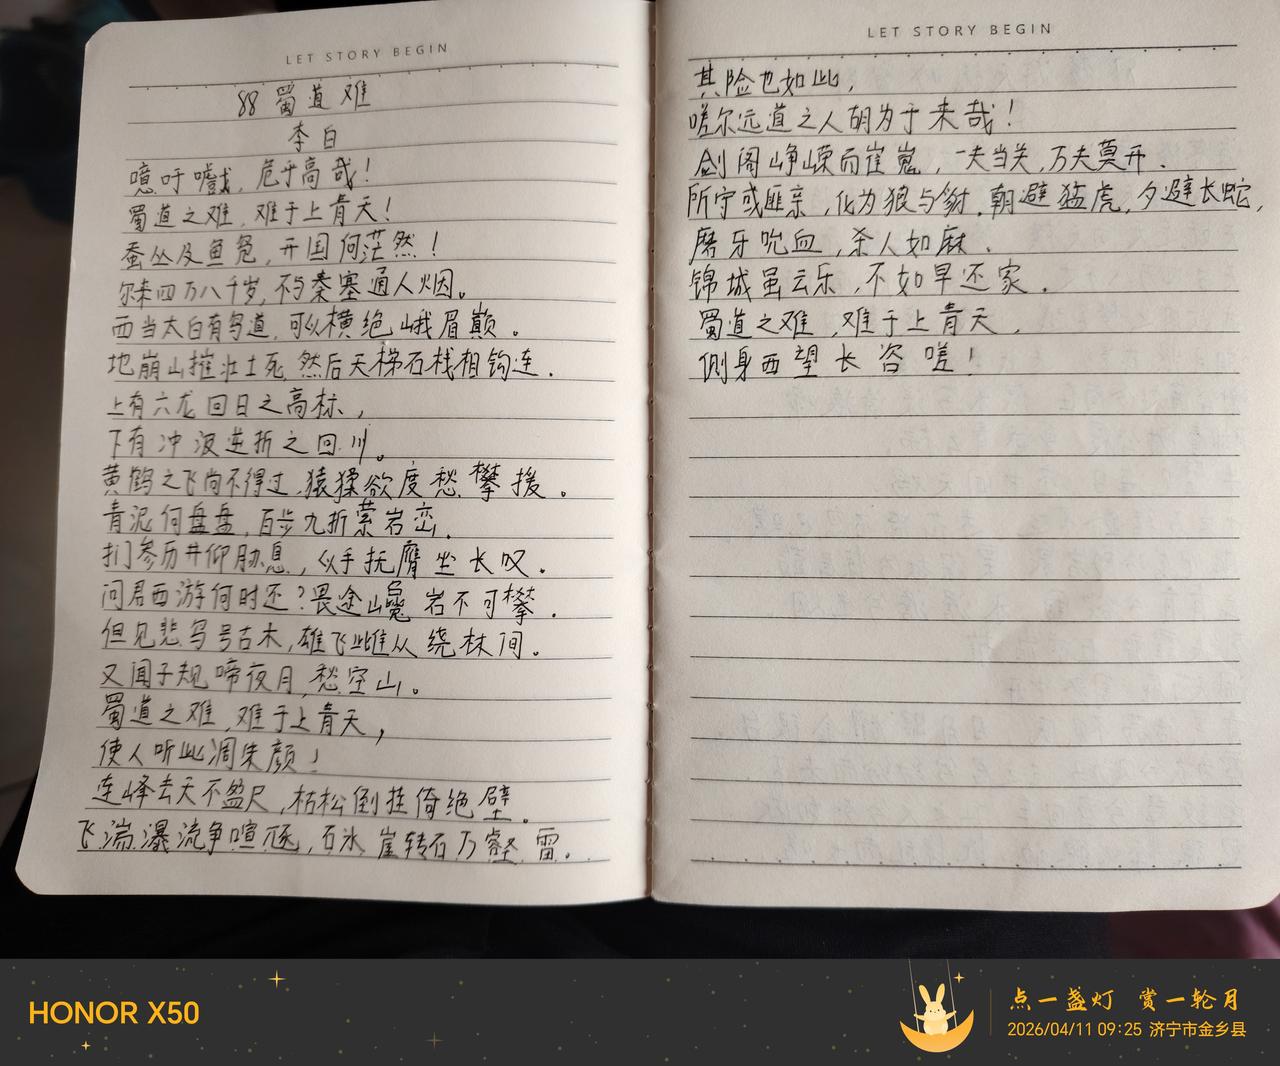 LET STORY BEGIN
88 蜀道难
李白
噫吁嚱,危乎高哉!
蜀道之难,难于上青天!
蚕丛及鱼凫,开国何茫然!
尔来四万八千岁,不与秦塞通人烟。
西当太白有鸟道,可以横绝峨眉巅。
地崩山摧壮士死,然后天梯石栈相钩连.
上有六龙回日之高标,
下有冲波逆折之回川。
黄鹤之飞尚不得过,猿猱欲度愁攀援。
青泥何盘盘,百步九折萦岩峦.
扪参历井仰胁息,以手抚膺坐长叹.
问君西游何时还?畏途巉岩不可攀.
但见悲鸟号古木,雄飞雌从绕林间。
又闻子规啼夜月,愁空山。
蜀道之难,难于上青天,
使人听此凋朱颜!
连峰去天不盈尺,枯松倒挂倚绝壁.
飞湍瀑流争喧豗,石冰崖转石万壑雷。
LET STORY BEGIN
其险也如此,
嗟尔远道之人胡为乎来哉!
剑阁峥嵘而崔嵬,一夫当关,万夫莫开.
所守或匪亲,化为狼与豺.朝避猛虎,夕避长蛇,
磨牙吮血,杀人如麻.
锦城虽云乐,不如早还家.
蜀道之难,难于上青天,
侧身西望长咨嗟!
HONOR X50
点一盏灯 赏一轮月
2026/04/11 09:25 济宁市金乡县